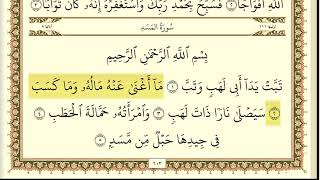 اللَّهِ أَفْوَاجًا ٢ فَسَبِّحْ بِحَمْدِ رَبِّكَ وَاسْتَغْفِرْهُ إِنَّهُ كَانَ تَوَّابًا ٣
سُورَةُ المَسَدِ
بِسْمِ اللَّهِ الرَّحْمَٰنِ الرَّحِيمِ
تَبَّتْ يَدَا أَبِي لَهَبٍ وَتَبَّ ١ مَا أَغْنَىٰ عَنْهُ مَالُهُ وَمَا كَسَبَ
٢ سَيَصْلَىٰ نَارًا ذَاتَ لَهَبٍ ٣ وَامْرَأَتُهُ حَمَّالَةَ الْحَطَبِ ٤
فِي جِيدِهَا حَبْلٌ مِّن مَّسَدٍ ٥
٦٠٣